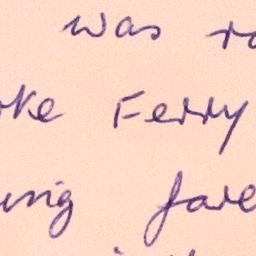 was ro
oke Ferry
ung fare